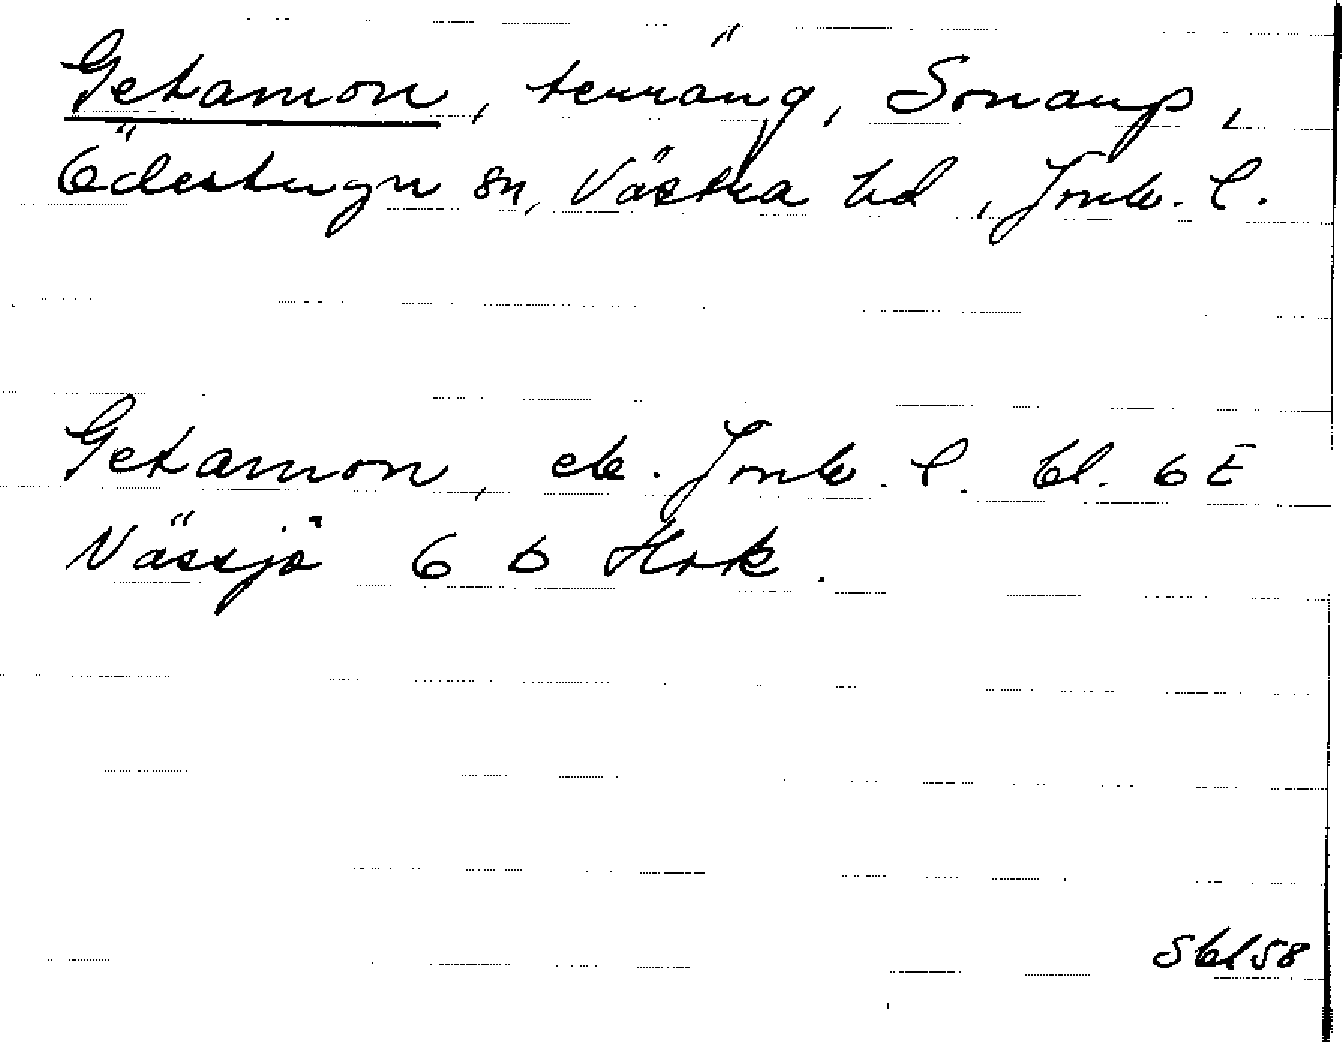 Getamon, terräng, Sonarp,
Ödestugu sn, Västra hd, Jönk. l.
Getamon, ek. Jönk. l. bl. 6 E
Nässjö 6 b Hok.
Sbl 58